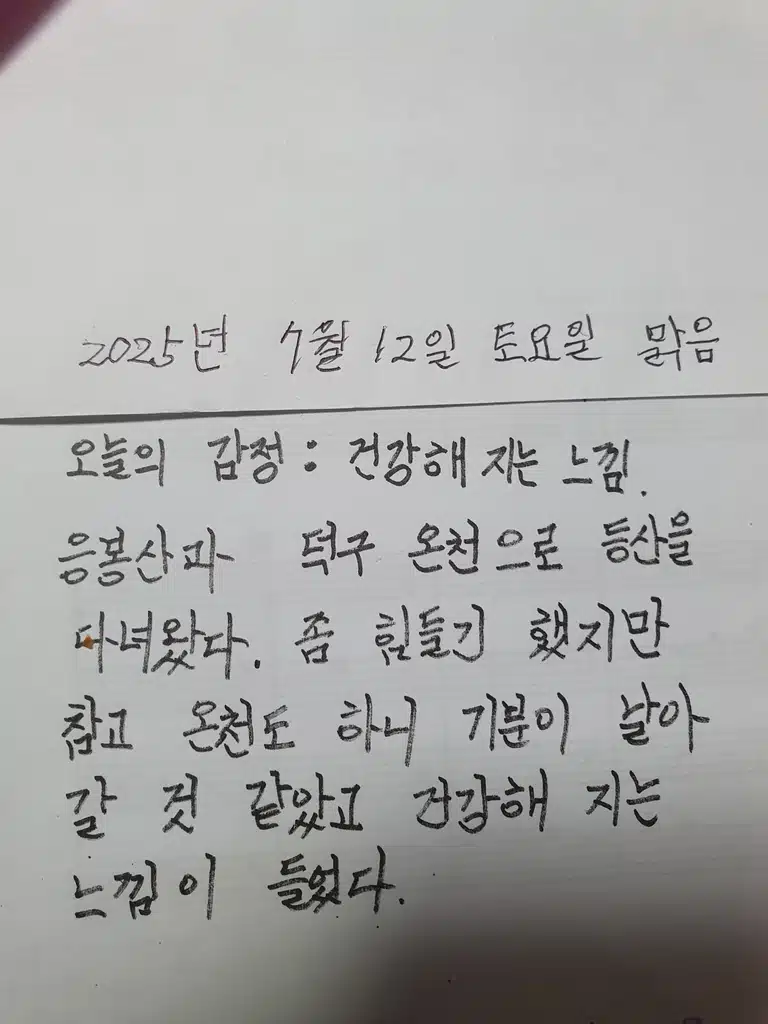 2025년 7월 12일 토요일 맑음
오늘의 감정 : 건강해 지는 느낌.
응봉산과 덕구 온천으로 등산을
다녀왔다. 좀 힘들긴 했지만
참고 온천도 하니 기분이 날아
갈 것 같았고 건강해 지는
느낌이 들었다.